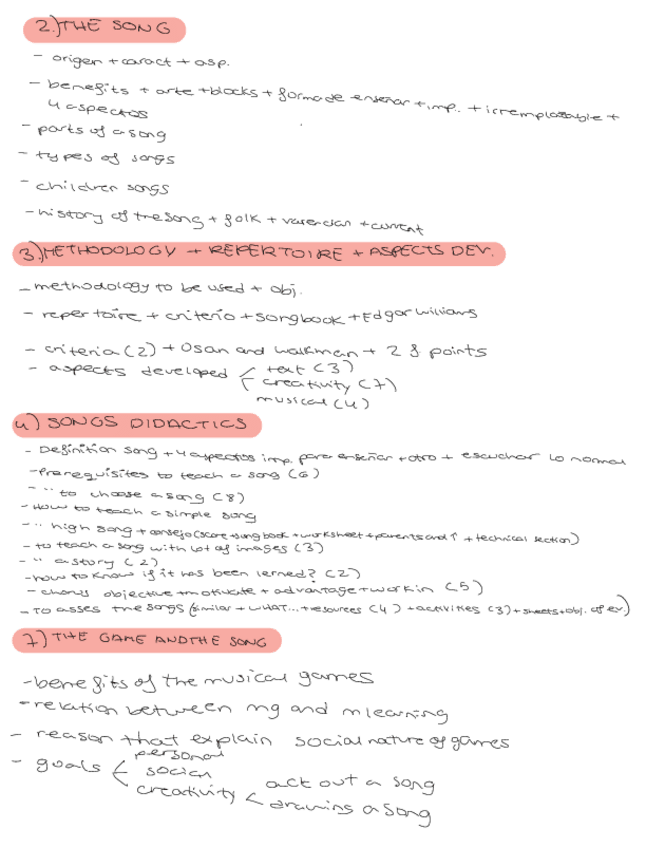 2.) THE SONG
- origen + caract + asp.
- benefits + arte + blocks + forma de enseñar + imp. + irremplazable +
4 aspectos
- parts of a song
- types of songs
- children songs
- history of the song + folk + valencian + current
3.) METHODOLOGY + REPERTOIRE + ASPECTS DEV.
- methodology to be used + obj.
- repertoire + criterio + songbook + Edgar Willians
- criteria (2) + Osan and walkman + 2 8 points
- aspects developed text (3)
creativity (7)
musical (4)
4) SONGS DIDACTICS
- Definition song + 4 aspectos imp. para enseñar + otro + escuchar lo normal
- Prerequisites to teach a song (6)
- " to choose a song (8)
- How to teach a simple song
- " high song + consejo (score + song book + worksheet + parents and ↑ + technical section)
- to teach a song with lot of images (3)
- " a story (2)
- how to know if it has been lerned? (2)
- chorus objective + motivate + advantage + work in (5)
- To asses the songs (similar + WHAT... + resources (4) + activities (3) + sheets + obj. of ev.)
7) THE GAME AND THE SONG
- benefits of the musical games
- relation between mg and m learning
- reason that explain social nature of games
- goals personal
social
creativity act out a song
drawing a song